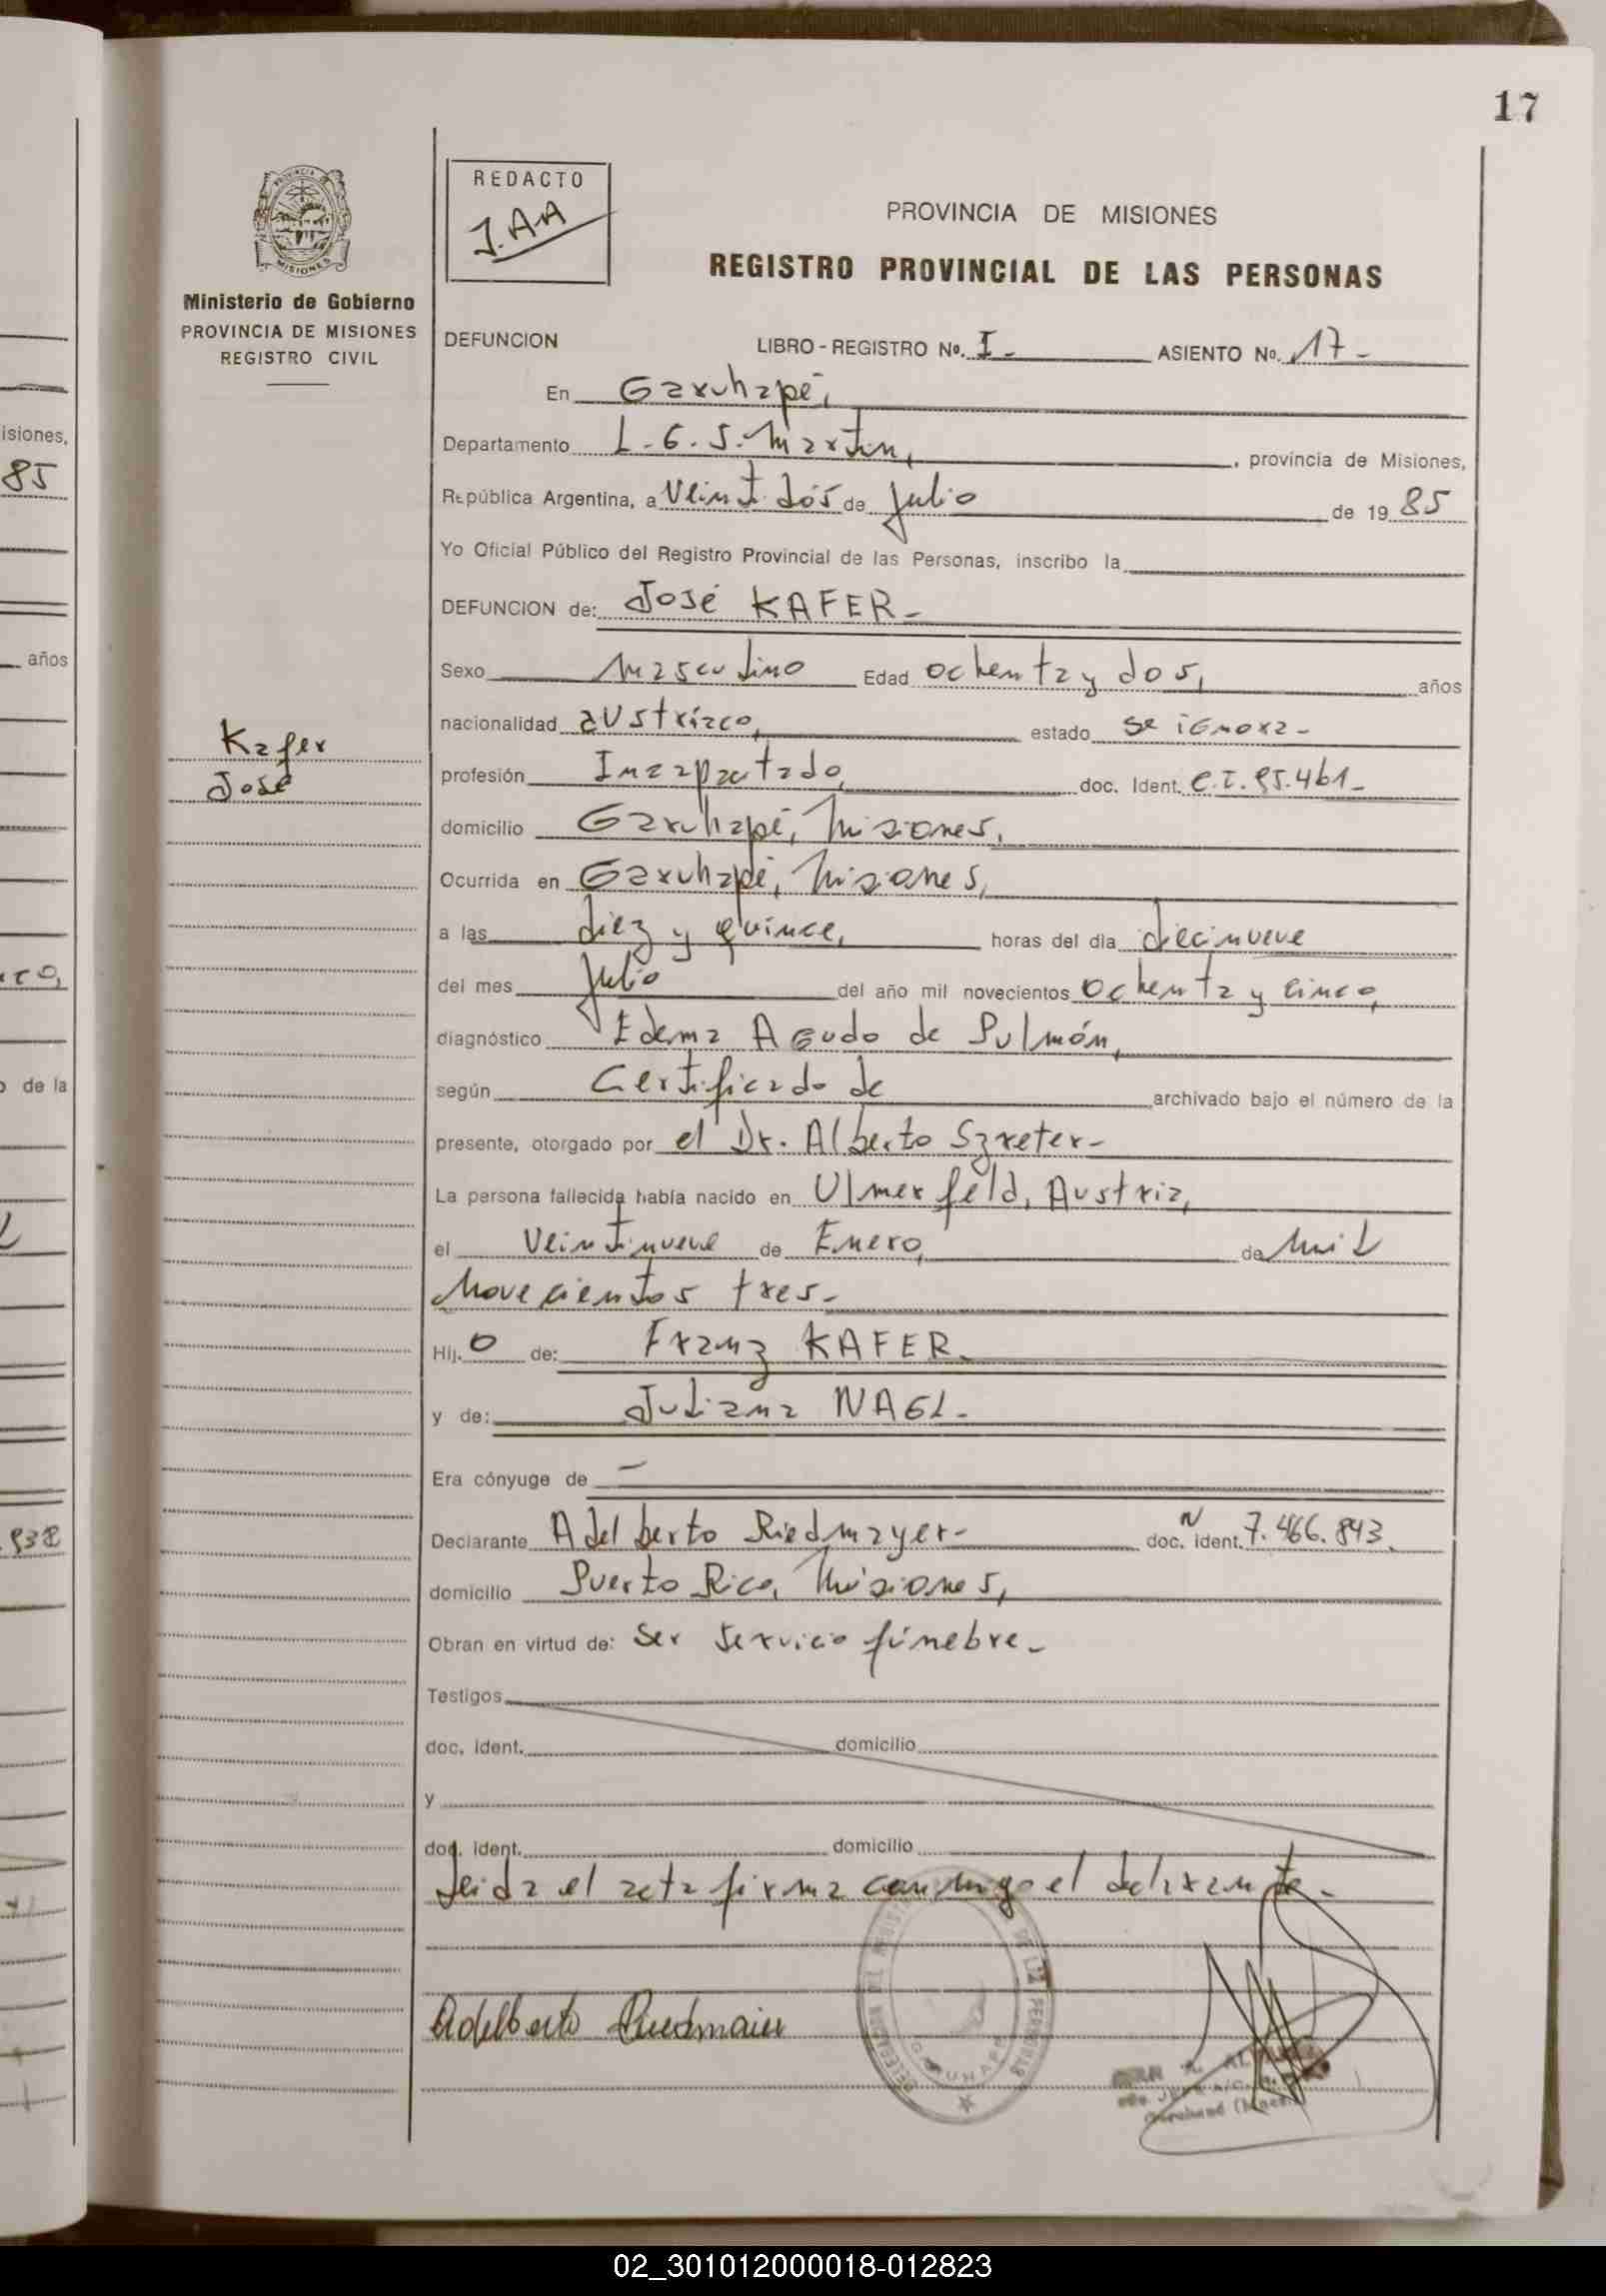 17
isiones,
85
años
de la
Ministerio de Gobierno
PROVINCIA DE MISIONES
REGISTRO CIVIL
Kafer
José
REDACTO
J.AA
PROVINCIA DE MISIONES
REGISTRO PROVINCIAL DE LAS PERSONAS
DEFUNCION LIBRO - REGISTRO No. I - ASIENTO No. 17 -
En Garuhapé,
Departamento L.G.S. Martin, , provincia de Misiones,
República Argentina, a Veintidós de Julio de 19 85
Yo Oficial Público del Registro Provincial de las Personas, inscribo la
DEFUNCION de: José KAFER -
Sexo Masculino Edad Ochenta y dos, años
nacionalidad austríaco, estado se ignora -
profesión Incapacitado, doc. Ident. C.I. 95.461 -
domicilio Garuhapé, Misiones,
Ocurrida en Garuhapé, Misiones,
a las diez y quince, horas del día diecinueve
del mes Julio del año mil novecientos Ochenta y cinco,
diagnóstico Edema Agudo de Pulmón,
según Certificado de archivado bajo el número de la
presente, otorgado por el Dr. Alberto Szreter -
La persona fallecida había nacido en Ulmerfeld, Austria,
el Veintinueve de Enero, de Mil
Novecientos tres -
Hij. o de: Franz KAFER -
y de: Juliana NAGL -
Era cónyuge de —
Declarante Adelberto Riedmayer - doc. ident. N 7.466.843.
domicilio Puerto Rico, Misiones,
Obran en virtud de: Ser Servicio fúnebre -
Testigos
doc. ident. domicilio
y
doc. ident. domicilio
Leida el acta firma conmigo el declarante -
Adelberto Riedmaier
GARUHAPE
02_301012000018-012823